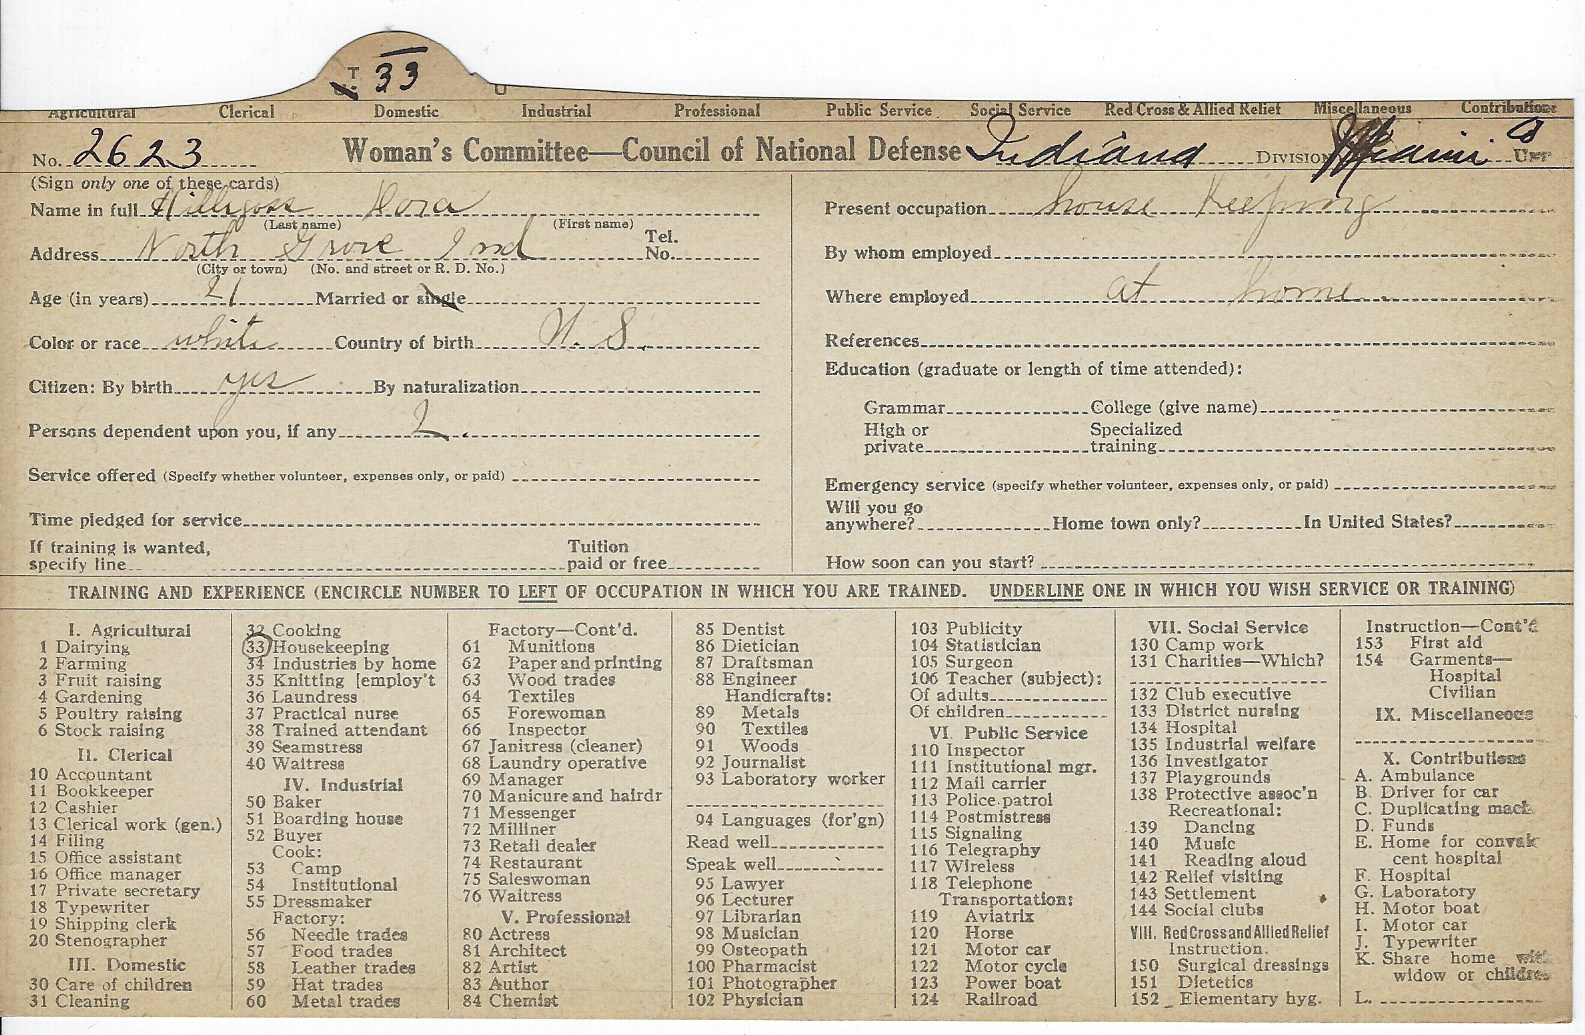 T 33
Agricultural Clerical Domestic Industrial Professional Public Service Social Service Red Cross & Allied Relief Miscellaneous Contributions
No. 2623 Woman's Committee—Council of National Defense Indiana Division Miami Unit
(Sign only one of these cards)
Name in full Hilligoss Dora
(Last name) (First name)
Address North Grove Ind Tel. No.
(City or town) (No. and street or R. D. No.)
Age (in years) 21 Married or single
Color or race white Country of birth U. S.
Citizen: By birth yes By naturalization
Persons dependent upon you, if any 2.
Service offered (Specify whether volunteer, expenses only, or paid)
Time pledged for service
If training is wanted, specify line Tuition paid or free
Present occupation house Keeping
By whom employed
Where employed at home
References
Education (graduate or length of time attended):
Grammar College (give name)
High or private Specialized training
Emergency service (specify whether volunteer, expenses only, or paid)
Will you go anywhere? Home town only? In United States?
How soon can you start?
TRAINING AND EXPERIENCE (ENCIRCLE NUMBER TO LEFT OF OCCUPATION IN WHICH YOU ARE TRAINED. UNDERLINE ONE IN WHICH YOU WISH SERVICE OR TRAINING)
I. Agricultural
1 Dairying
2 Farming
3 Fruit raising
4 Gardening
5 Poultry raising
6 Stock raising
II. Clerical
10 Accountant
11 Bookkeeper
12 Cashier
13 Clerical work (gen.)
14 Filing
15 Office assistant
16 Office manager
17 Private secretary
18 Typewriter
19 Shipping clerk
20 Stenographer
III. Domestic
30 Care of children
31 Cleaning
32 Cooking
33 Housekeeping
34 Industries by home
35 Knitting [employ't
36 Laundress
37 Practical nurse
38 Trained attendant
39 Seamstress
40 Waitress
IV. Industrial
50 Baker
51 Boarding house
52 Buyer
Cook:
53 Camp
54 Institutional
55 Dressmaker
Factory:
56 Needle trades
57 Food trades
58 Leather trades
59 Hat trades
60 Metal trades
Factory—Cont'd.
61 Munitions
62 Paper and printing
63 Wood trades
64 Textiles
65 Forewoman
66 Inspector
67 Janitress (cleaner)
68 Laundry operative
69 Manager
70 Manicure and hairdr
71 Messenger
72 Milliner
73 Retail dealer
74 Restaurant
75 Saleswoman
76 Waitress
V. Professional
80 Actress
81 Architect
82 Artist
83 Author
84 Chemist
85 Dentist
86 Dietician
87 Draftsman
88 Engineer
Handicrafts:
89 Metals
90 Textiles
91 Woods
92 Journalist
93 Laboratory worker
94 Languages (for'gn)
Read well
Speak well
95 Lawyer
96 Lecturer
97 Librarian
98 Musician
99 Osteopath
100 Pharmacist
101 Photographer
102 Physician
103 Publicity
104 Statistician
105 Surgeon
106 Teacher (subject):
Of adults
Of children
VI. Public Service
110 Inspector
111 Institutional mgr.
112 Mail carrier
113 Police patrol
114 Postmistress
115 Signaling
116 Telegraphy
117 Wireless
118 Telephone
Transportation:
119 Aviatrix
120 Horse
121 Motor car
122 Motor cycle
123 Power boat
124 Railroad
VII. Social Service
130 Camp work
131 Charities—Which?
132 Club executive
133 District nursing
134 Hospital
135 Industrial welfare
136 Investigator
137 Playgrounds
138 Protective assoc'n
Recreational:
139 Dancing
140 Music
141 Reading aloud
142 Relief visiting
143 Settlement
144 Social clubs
VIII. Red Cross and Allied Relief
Instruction.
150 Surgical dressings
151 Dietetics
152 Elementary hyg.
Instruction—Cont'd
153 First aid
154 Garments—
Hospital
Civilian
IX. Miscellaneous
X. Contributions
A. Ambulance
B. Driver for car
C. Duplicating mach.
D. Funds
E. Home for convales
cent hospital
F. Hospital
G. Laboratory
H. Motor boat
I. Motor car
J. Typewriter
K. Share home with
widow or children
L.